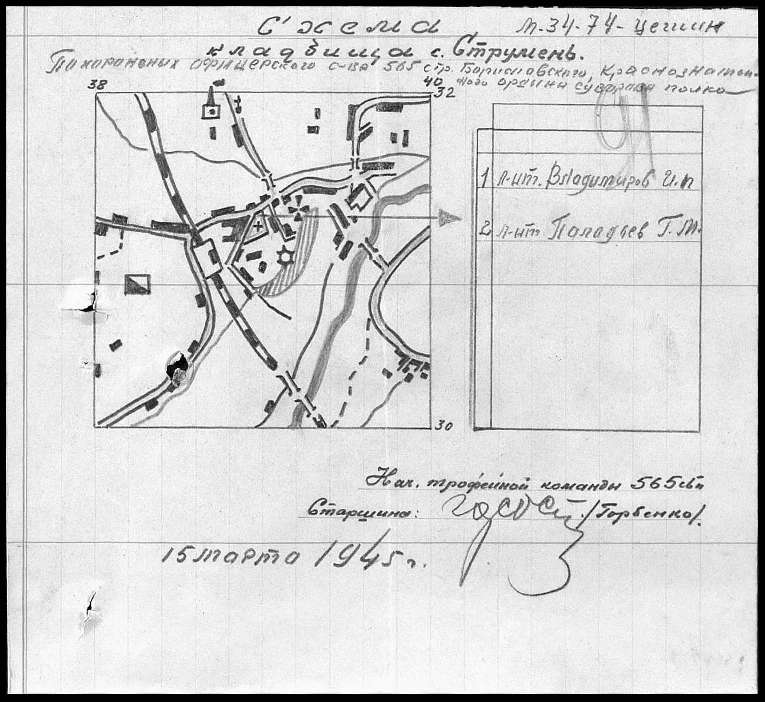 Схема
М-34-74-Цешин
кладбища с. Струмень.
Похороненых офицерского с-ва 565 стр. Бориславского, Краснознамен-
ного ордина суворова полка
38
40
32
1 л-нт. Владимиров И. П
2 л-нт Паладьев Г. М.
30
Нач. трофейной команды 565 сп
Старшина: /Горбенко/.
15 марта 1945 г.